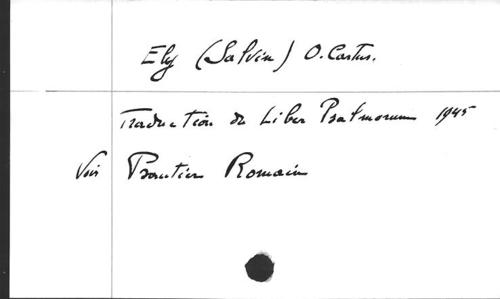 Ely (Salvin) O. Cartus.
Traduction du Liber Psalmorum 1945
Voir Psautier Romain